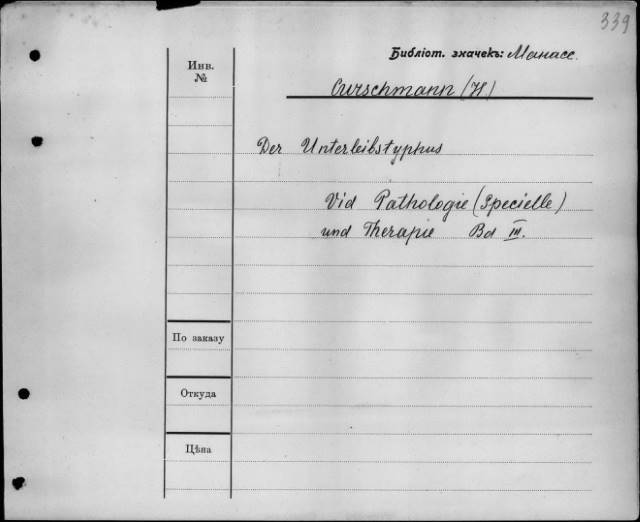 339
Библіот. значекъ: Манасс.
Инв.
№
Curschmann (H)
Der Unterleibstyphus
Vid Pathologie (Specielle)
und Therapie Bd III.
По заказу
Откуда
Цѣна